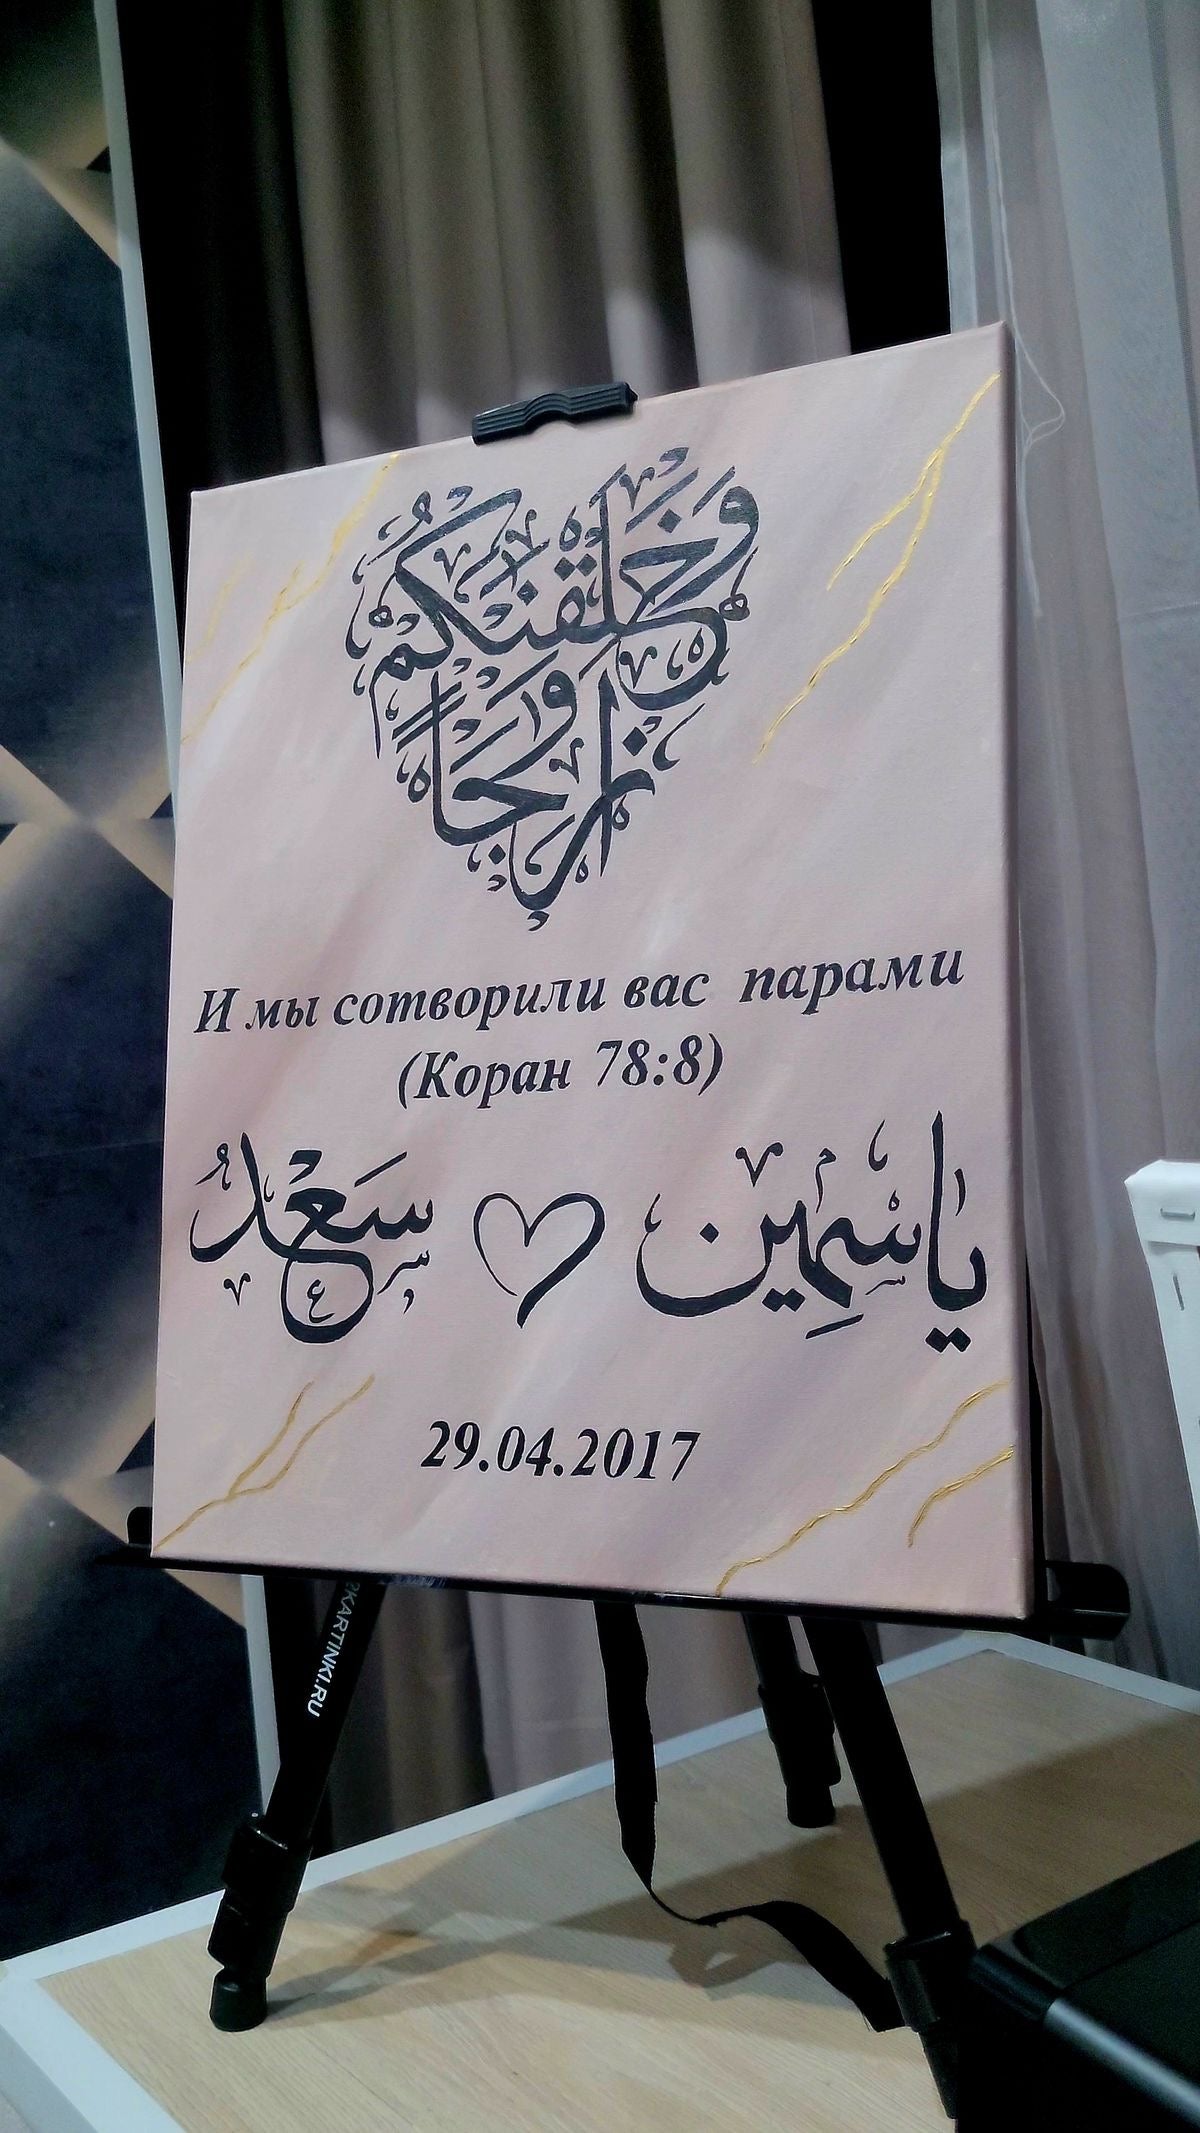 وَخَلَقْنَٰكُمْ
أَزْوَٰجًا
И мы сотворили вас парами
(Коран 78:8)
يَاسْمِين ♡ سَعْدُ
29.04.2017
KARTINKI.RU